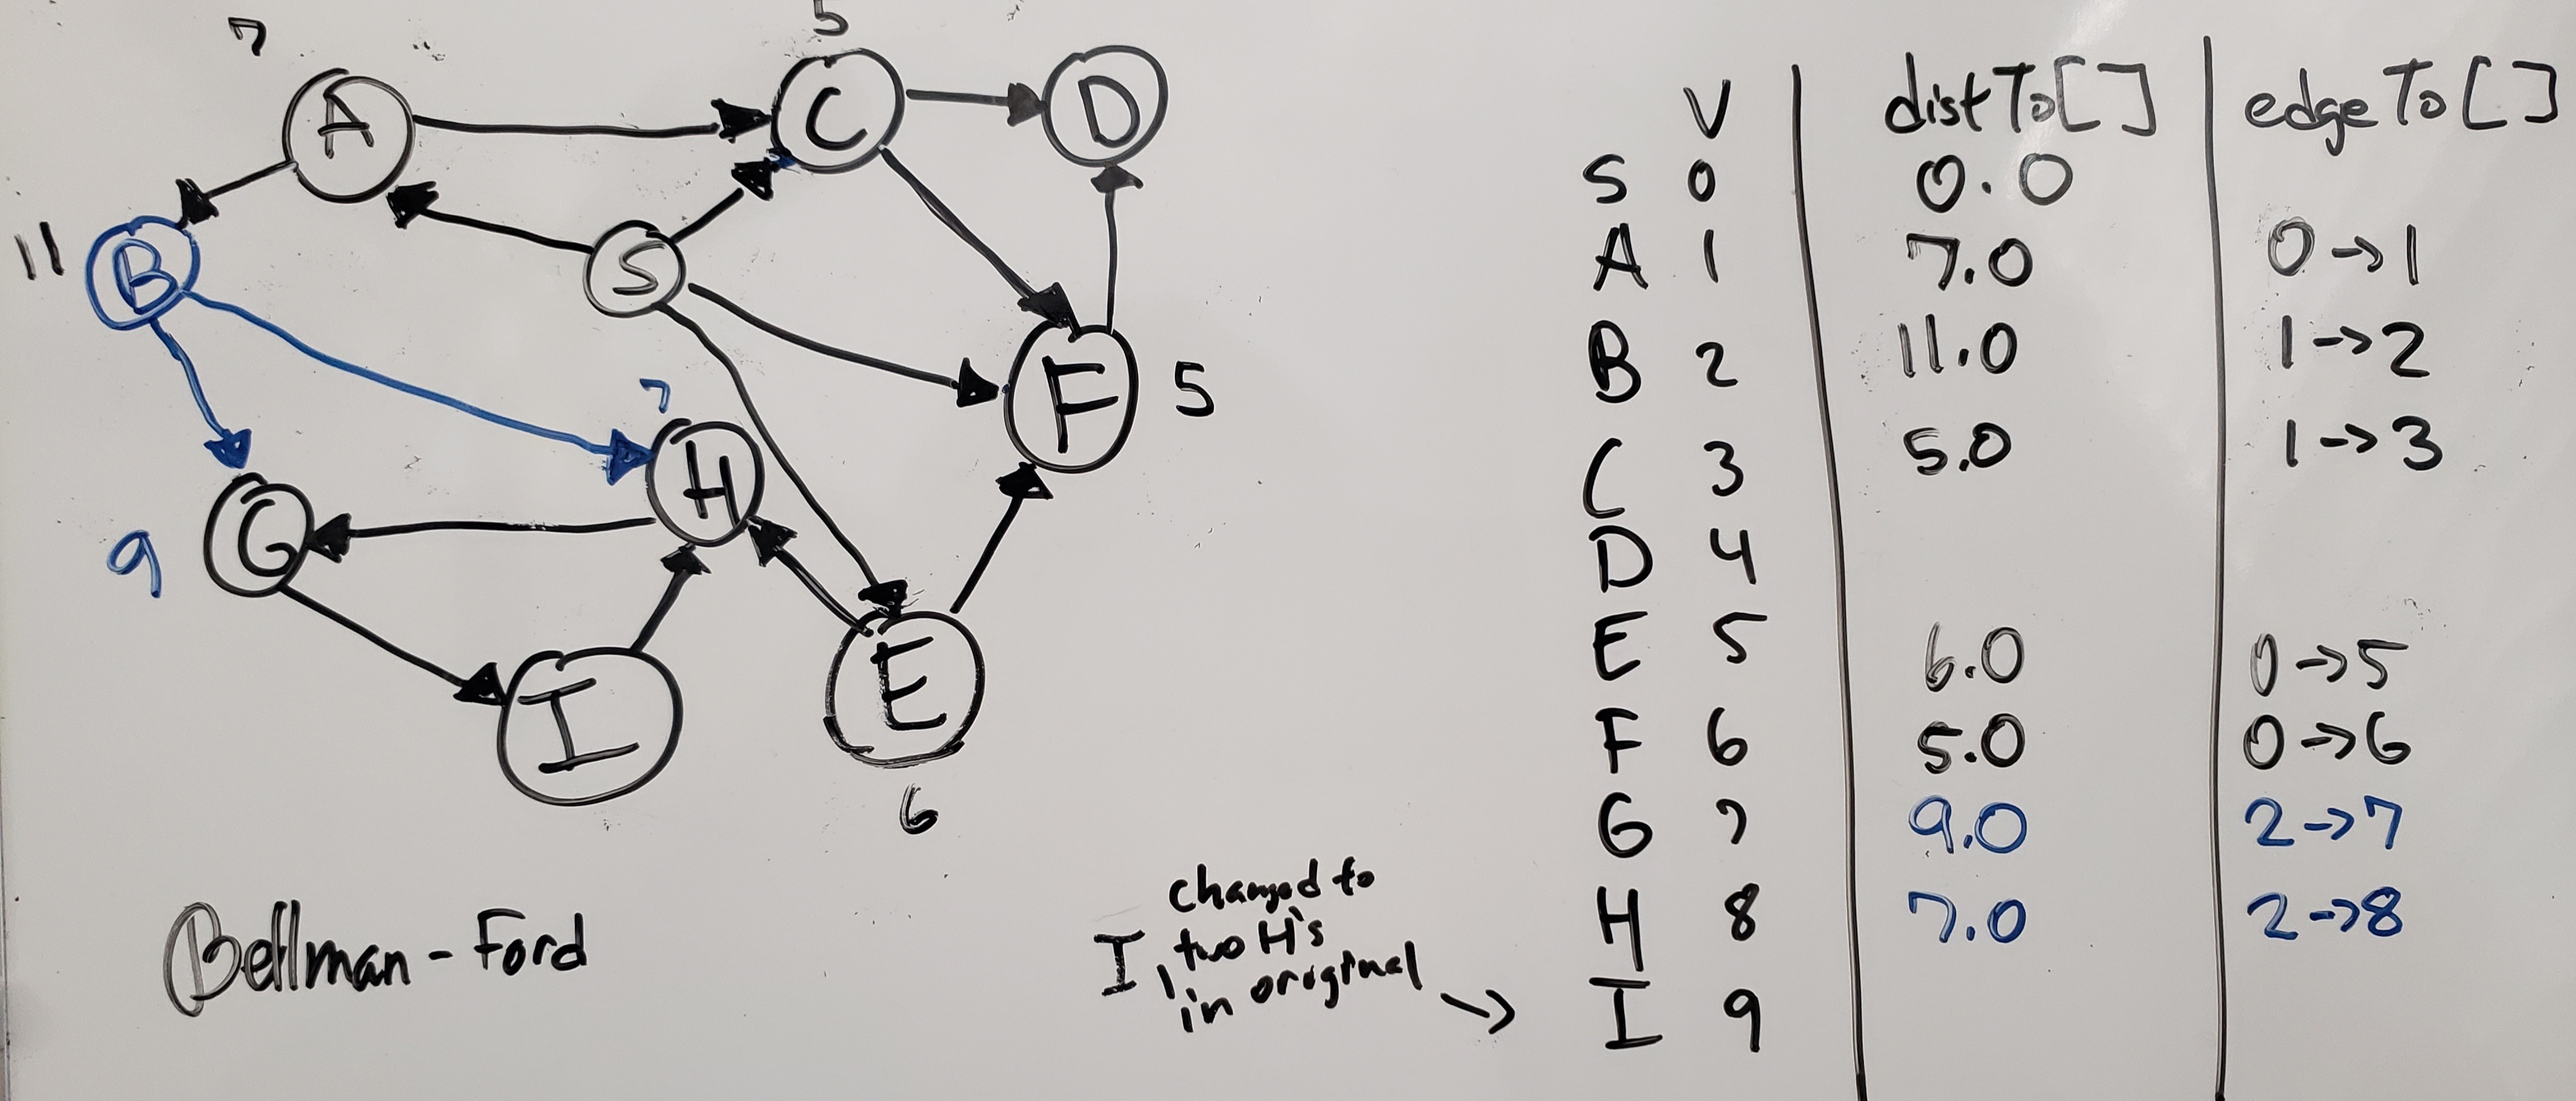 7
5
A
C
D
11
B
S
7
F
5
H
9
G
I
E
6
Bellman-Ford
changed to
I, two H's
in original
→
V | distTo[] | edgeTo[]
S 0 | 0.0 |
A 1 | 7.0 | 0→1
B 2 | 11.0 | 1→2
C 3 | 5.0 | 1→3
D 4 | |
E 5 | 6.0 | 0→5
F 6 | 5.0 | 0→6
G 7 | 9.0 | 2→7
H 8 | 7.0 | 2→8
I 9 | |